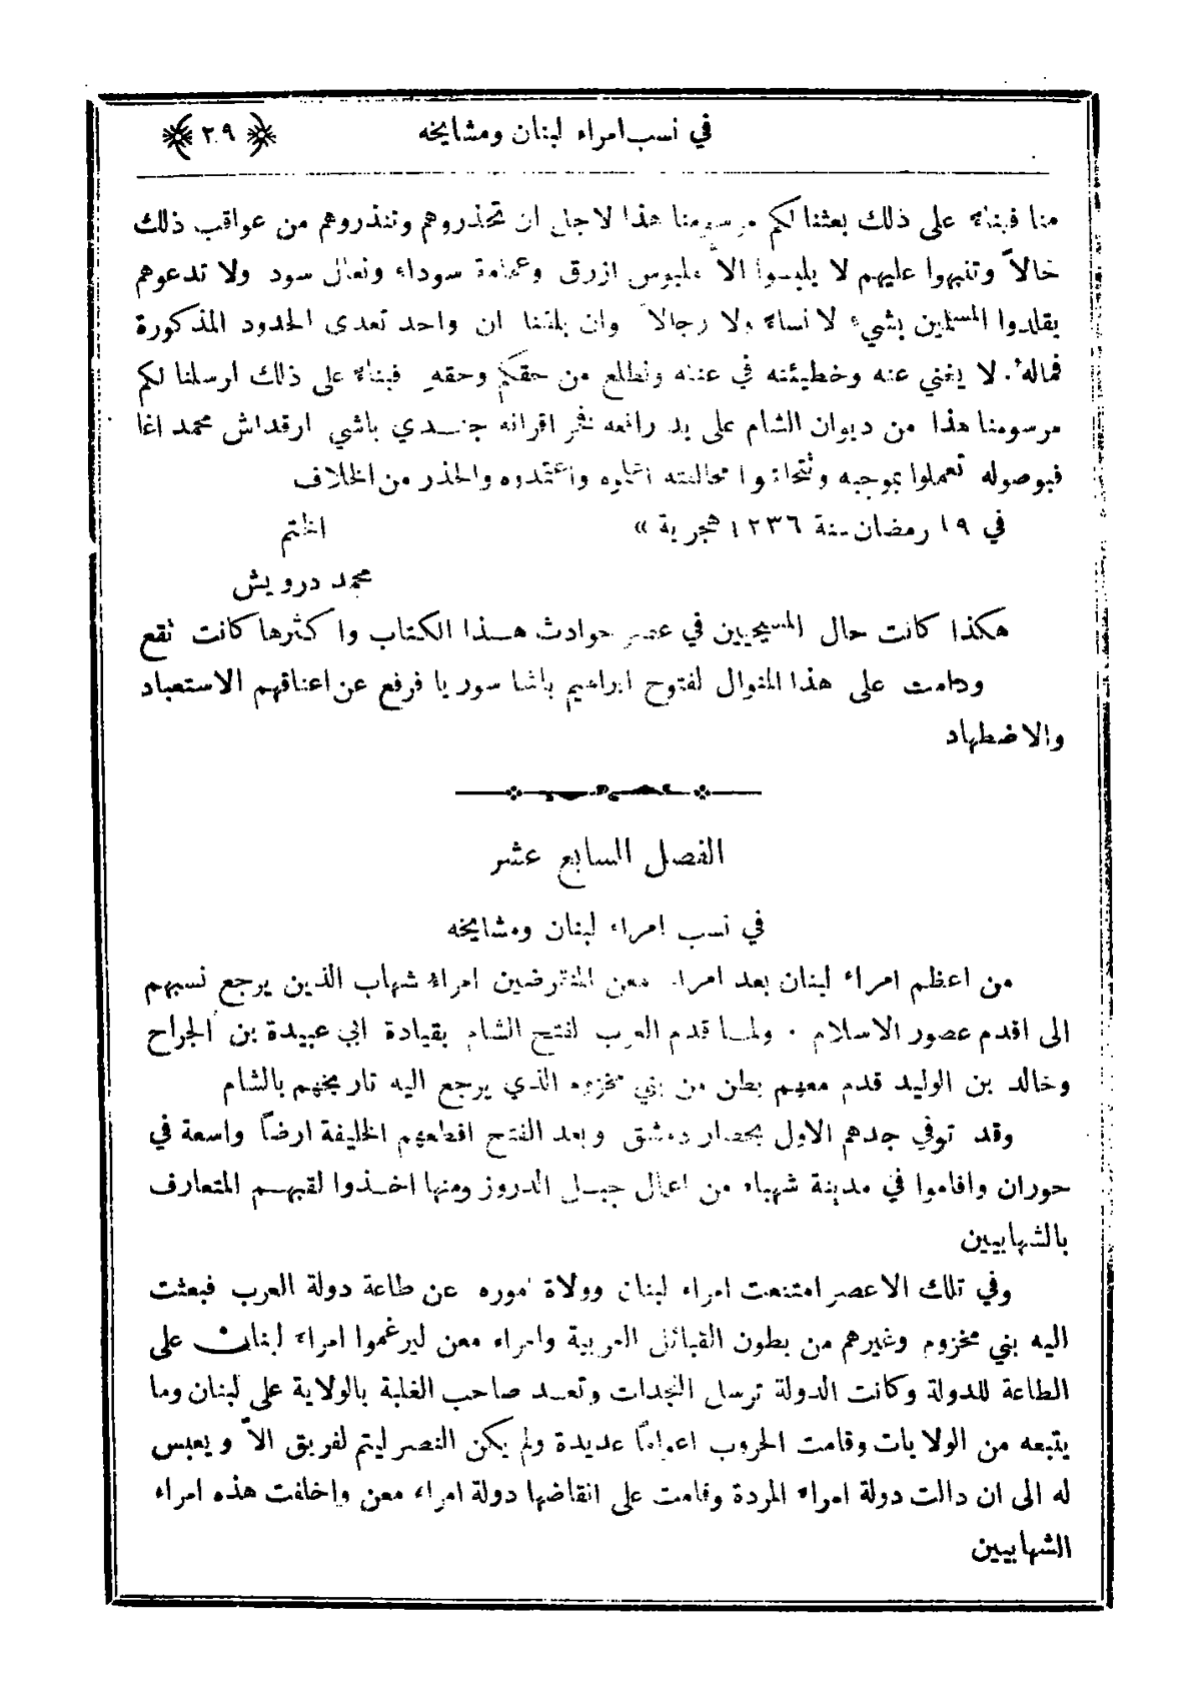 في نسب امراء لبنان ومشايخه ﴿ ٢٩ ﴾
منا فبناءً على ذلك بعثنا لكم مرسومنا هذا لاجل ان تحذروهم وتنذروهم من عواقب ذلك
حالاً وتنبهوا عليهم لا يلبسوا الاَّ ملبوس ازرق وعمامة سوداء ونعال سود ولا تدعوهم
يقلدوا المسلمين بشيءٍ لا نساءً ولا رجالاً وان بلغنا ان واحد تعدى الحدود المذكورة
فماله لا يغني عنه وخطيئته في عنقه ونطلع من حقكم وحقهِ فبناءً على ذلك ارسلنا لكم
مرسومنا هذا من ديوان الشام على يد رافعه فخر اقرانه جندي باشي ارقداش محمد اغا
فبوصوله تعملوا بموجبه وتتحاشوا مخالفته اعلموه واعتمدوه والحذر من الخلاف
في ١٩ رمضان سنة ١٢٣٦ هجرية » الختم
محمد درويش
هكذا كانت حال المسيحيين في عصر حوادث هذا الكتاب واكثرها كانت تقع
ودامت على هذا المنوال لفتوح ابراهيم باشا سوريا فرفع عن اعناقهم الاستعباد
والاضطهاد
الفصل السابع عشر
في نسب امراء لبنان ومشايخه
من اعظم امراء لبنان بعد امراء معن المنقرضين امراءُ شهاب الذين يرجع نسبهم
الى اقدم عصور الاسلام . ولما قدم العرب لفتح الشام بقيادة ابي عبيدة بن الجراح
وخالد بن الوليد قدم معهم بطن من بني مخزوم الذي يرجع اليه تاريخهم بالشام
وقد توفي جدهم الاول بحصار دمشق وبعد الفتح اقطعهم الخليفة ارضاً واسعة في
حوران واقاموا في مدينة شهباء من اعمال جبل الدروز ومنها اخذوا لقبهم المتعارف
بالشهابيين
وفي تلك الاعصر امتنعت امراء لبنان وولاة اموره عن طاعة دولة العرب فبعثت
اليه بني مخزوم وغيرهم من بطون القبائل العربية وامراء معن ليرغموا امراء لبنان على
الطاعة للدولة وكانت الدولة ترسل النجدات وتعد صاحب الغلبة بالولاية على لبنان وما
يتبعه من الولايات وقامت الحروب اعواماً عديدة ولم يكن النصر ليتم لفريق الاَّ ويعبس
له الى ان دالت دولة امراء المردة وقامت على انقاضها دولة امراء معن واخلفت هذه امراء
الشهابيين